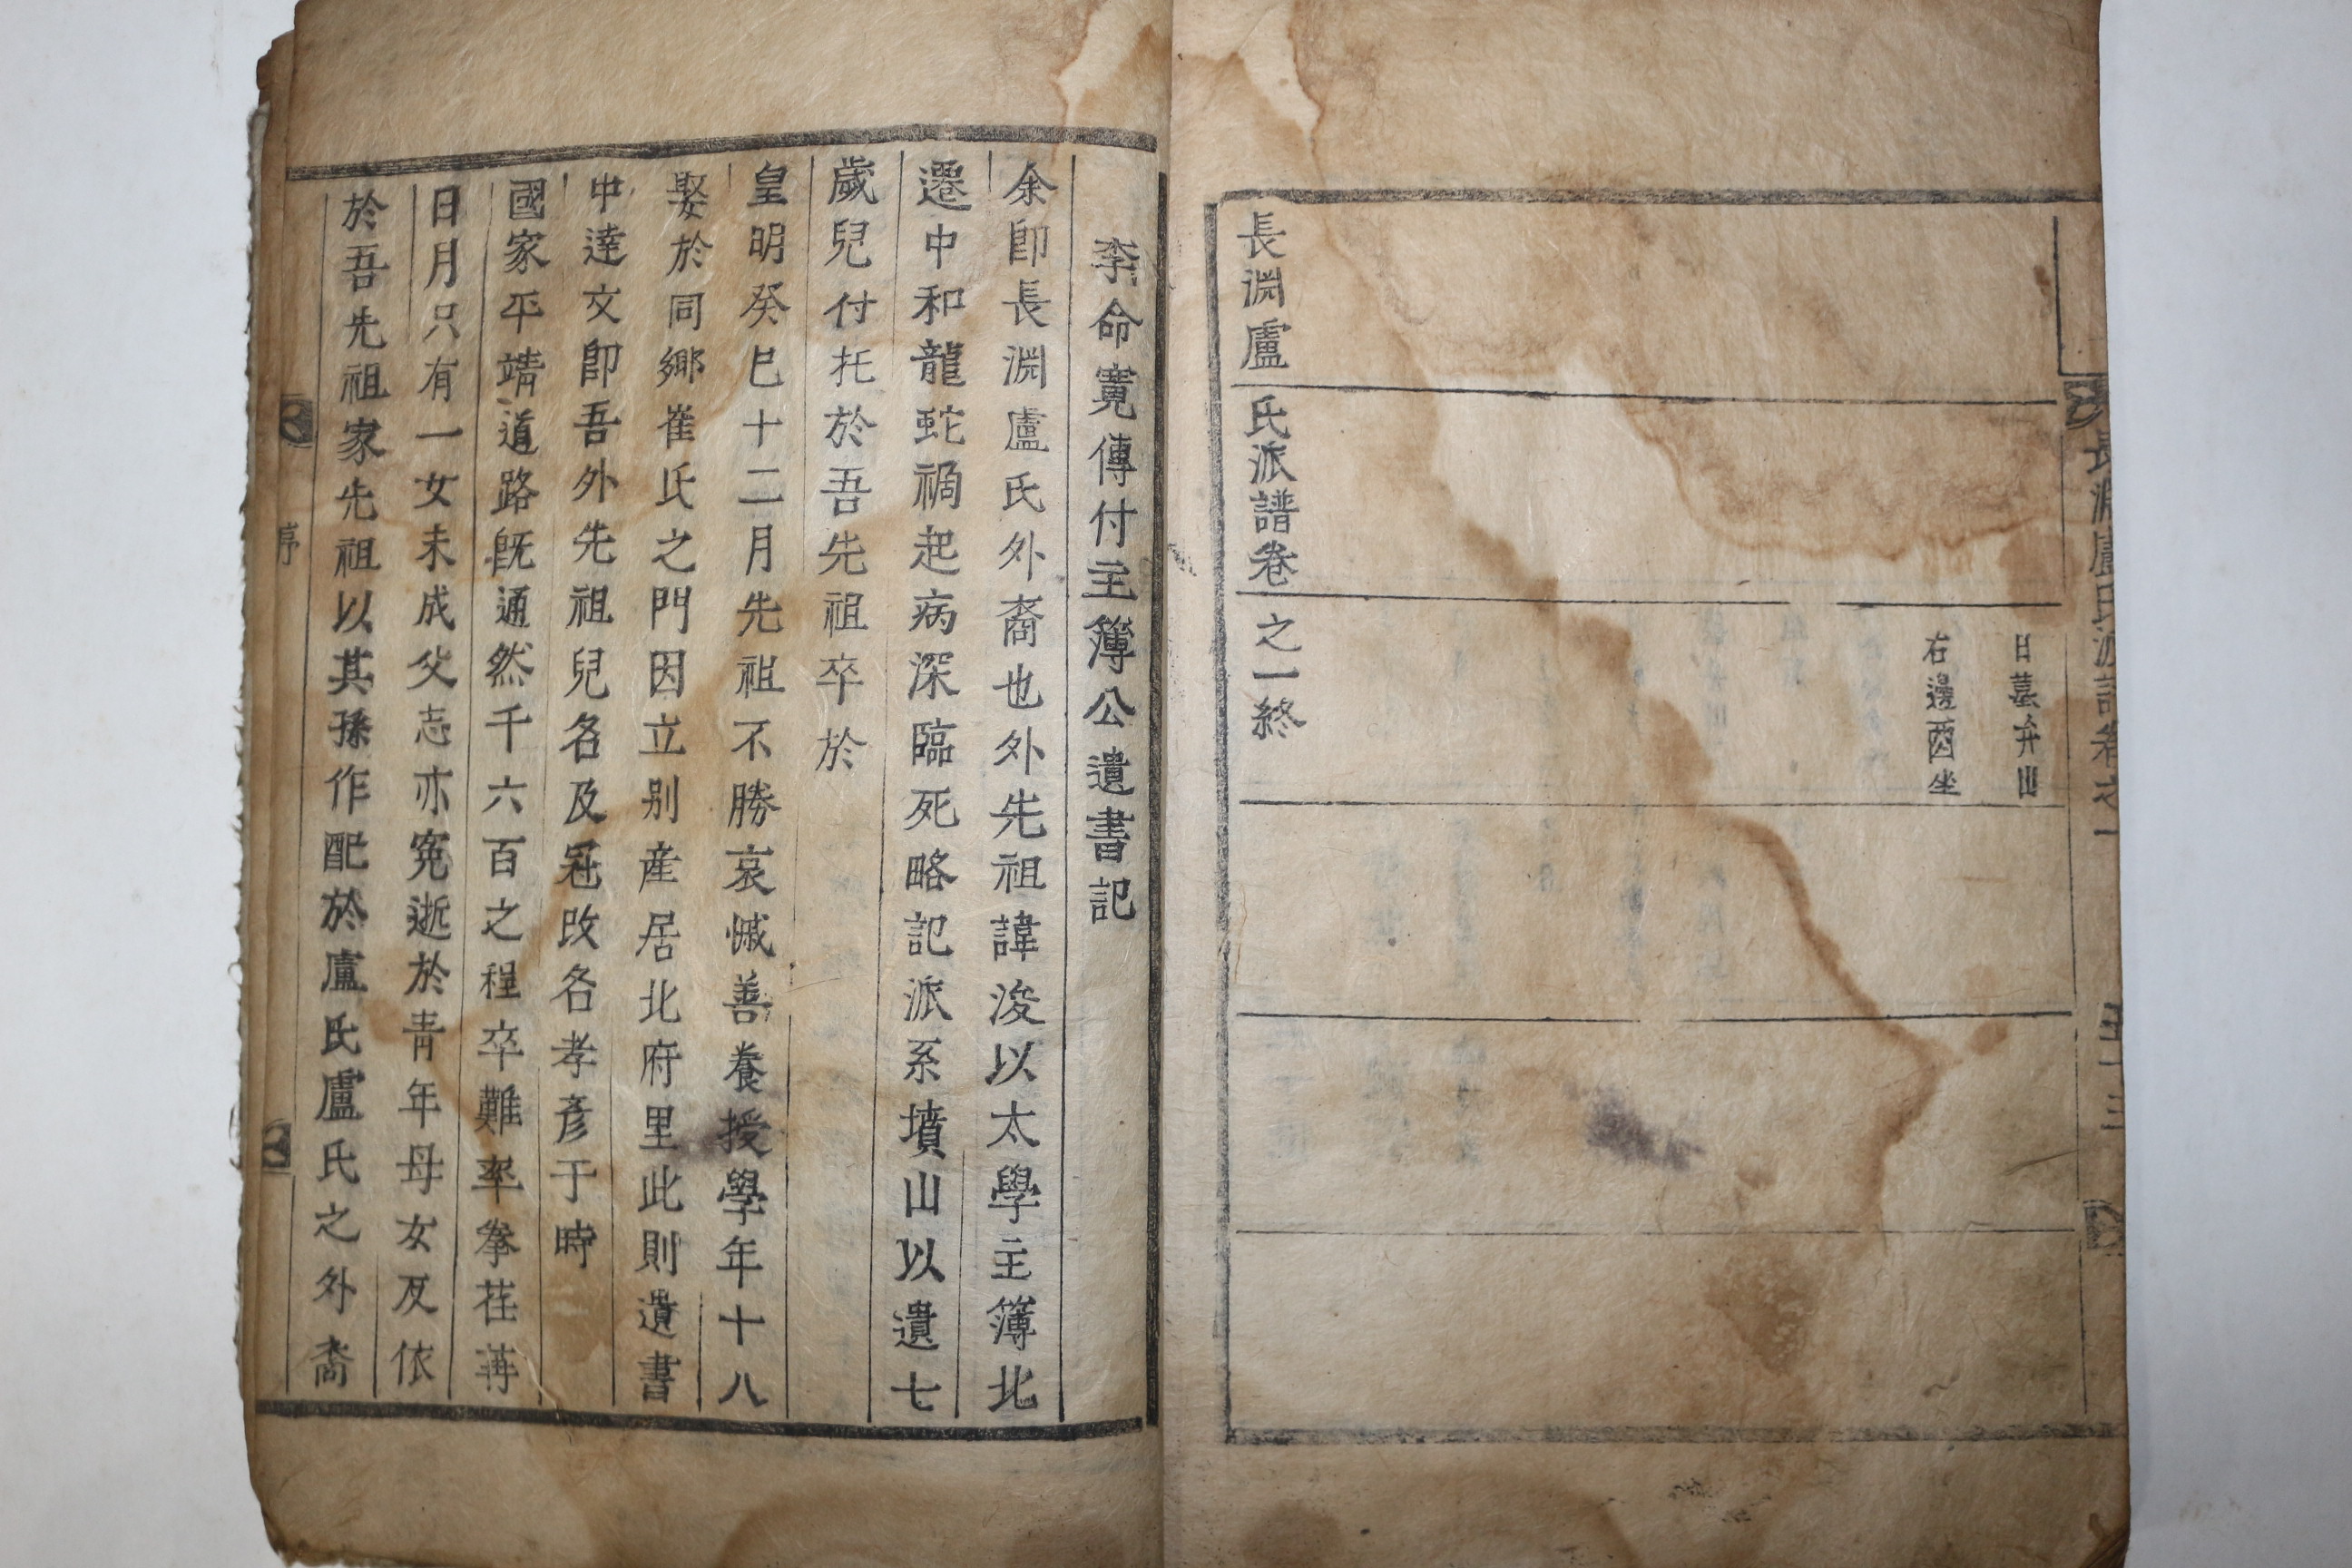 長淵盧氏派譜卷之一
五十三
日墓弁山
右邊酉坐
長淵盧氏派譜卷之一終
李命寬傳付主簿公遺書記
余卽長淵盧氏外裔也外先祖諱浚以太學主簿北
遷中和龍蛇禍起病深臨死略記派系墳山以遺七
歲兒付托於吾先祖卒於
皇明癸巳十二月先祖不勝哀慽善養授學年十八
娶於同鄉崔氏之門因立別產居北府里此則遺書
中達文卽吾外先祖兒名及冠改名孝彥于時
國家平靖道路旣通然千六百之程卒難率拳荏苒
日月只有一女未成父志亦寃逝於靑年母女反依
於吾先祖家先祖以其孫作配於盧氏盧氏之外裔
序